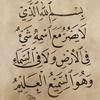 بِسْمِ اللهِ الَّذِي
لَا يَضُرُّ مَعَ اسْمِهِ شَيْءٌ
فِي الْأَرْضِ وَلَا فِي السَّمَاءِ
وَهُوَ السَّمِيعُ الْعَلِيمُ